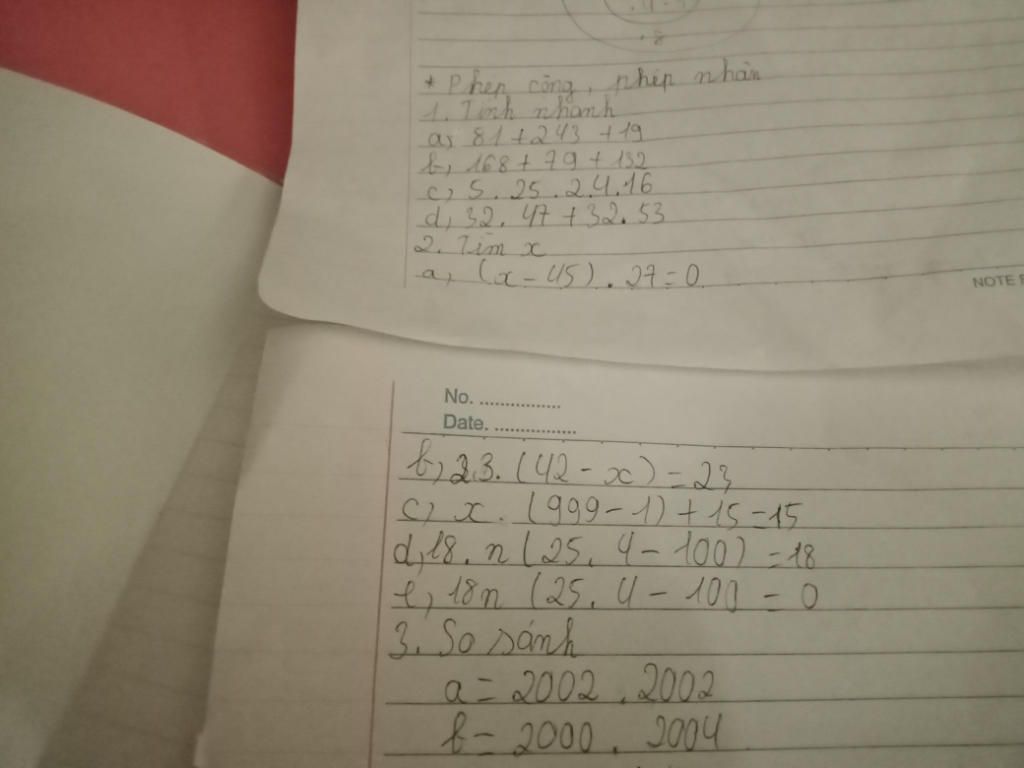 .8
* Phép cộng, phép nhân
1. Tính nhanh
a, 81 + 243 + 19
b, 168 + 79 + 132
c, 5 . 25 . 2 . 4 . 16
d, 32 . 47 + 32 . 53
2. Tìm x
a, (x - 45) . 27 = 0
NOTE
No. ................
Date. ................
b, 23. (42 - x) = 23
c, x. (999 - 1) + 15 = 15
d, 18. n (25. 4 - 100) = 18
e, 18n (25. 4 - 100 = 0
3. So sánh
a = 2002 . 2002
b = 2000 . 2004